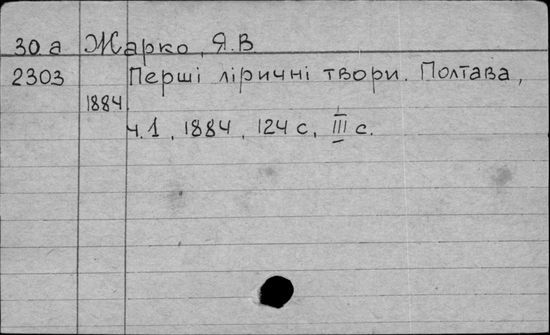 30 а Жарко, Я.В
2303 Перші ліричні твори. Полтава,
1884
ч.1, 1884, 124 с, III с.